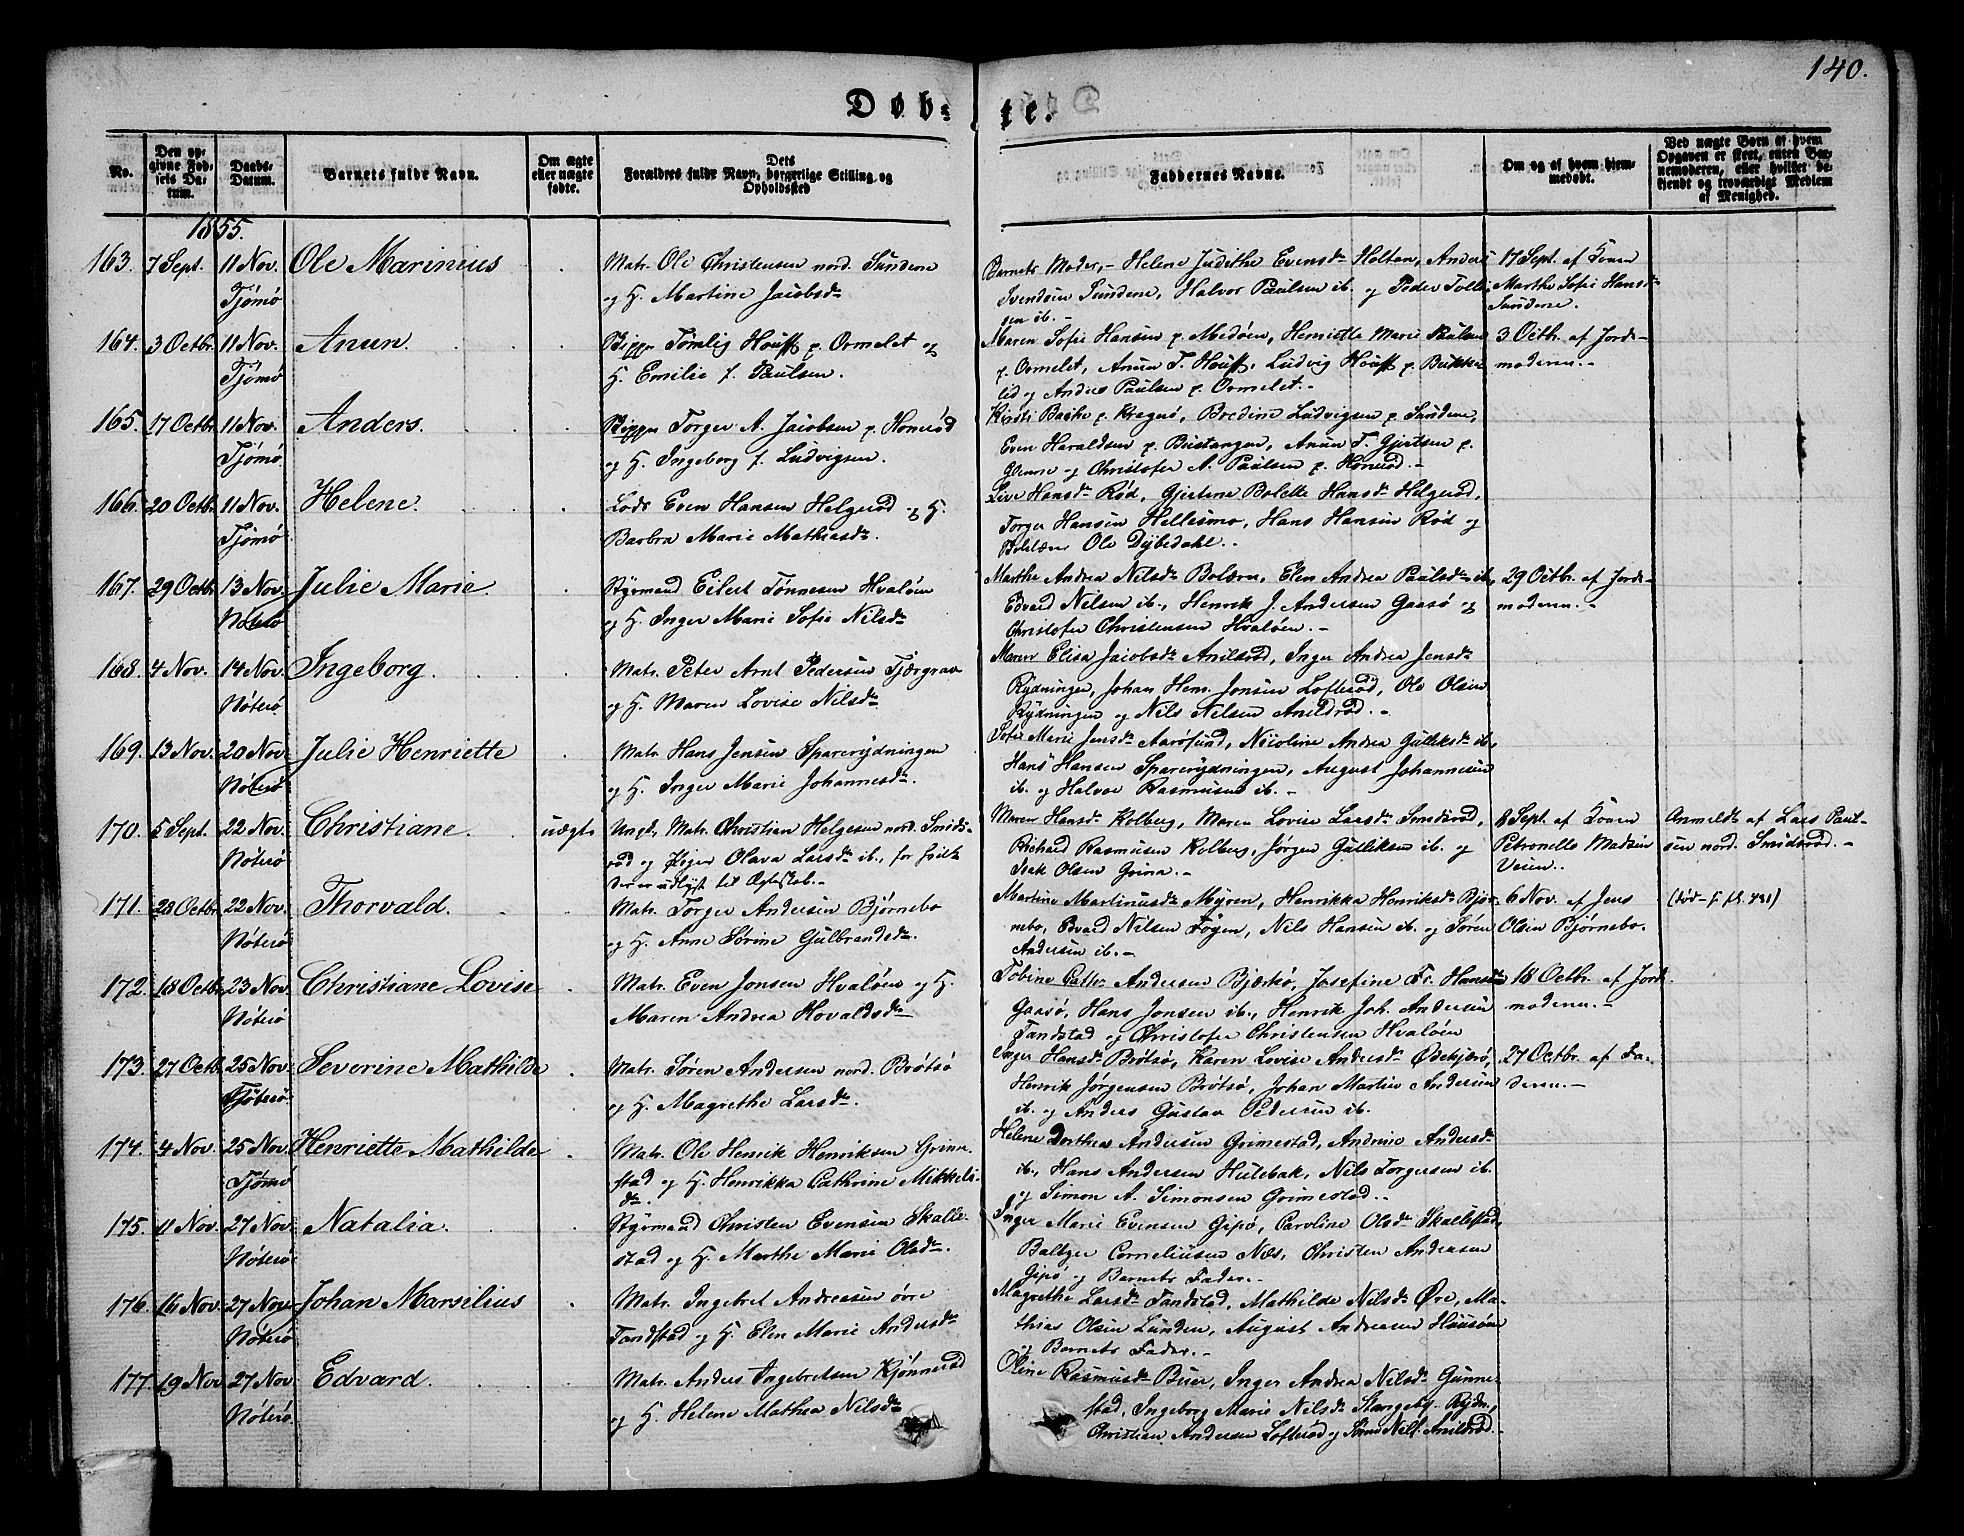 140.
Døb-te.
No.
Den opgivne Fødsels Datum.
Daabs-Datum.
Barnets fulde Navn.
Om ægte eller uægte fødte.
Forældres fulde Navn, Dets borgerlige Stilling og Opholdsted
Faddernes Navne.
Om og af hvem hjemmedøbt.
Ved uægte Børn af hvem Opgaven er skeet, enten Barnemoderen, eller hvilket bekjendt og troværdigt Medlem af Menighed.
1855.
163. 7 Sept. 11 Nov. Tjømø Ole Marinius
Matr. Ole Christensen nord. Sundene
og H. Martine Jacobsdr
Barnets Moder,- Helene Judithe Evensdr Holten, Anders
Svendsen Sundene, Halvor Paulsen ib. og Peder Tolle
sen ib. -
17 Sept. af Konen
Marthe Sofie Hansdr
Sundene.
164. 3 Octbr. 11 Nov. Tjømø Anun.
Skippr Tømlig Houff p. Ormelet og
H. Emilie f. Paulsen.
Maren Sofie Hansen p. Medøen, Henriette Marie Paulsen
p. Ormelet, Anun T. Houff, Ludvig Houff p. Bukke
lid og Andrea Paulsen p. Ormelet.-
3 Octbr. af Jorde-
moderen.-
165. 17 Octbr. 11 Nov. Tjømø Anders.
Skippr Torger A. Jacobsen p. Honerød
og H. Ingeborg f. Ludvigsen.
Kirsti Bache p. Kragerø, Bredine Ludvigsen p. Sundene,
Even Haraldsen p. Bustangen, Anun T. Gjertsen p.
Glomse og Christofer A. Paulsen p. Honerød.-
166. 20 Octbr. 11 Nov. Tjømø Helene.
Lods Even Hansen Helgerød og H.
Barbra Marie Mathiasdr
Live Hansdr Rød, Gjertine Bolette Hansdr Helgerød,
Torger Hansen Hellesmo, Hans Hansen Rød og
Ole Dybedahl.-
167. 29 Octbr. 13 Nov. Nøterø Julie Marie
Styrmand Eilert Tønnesen Hvaløen
og H. Inger Marie Sofie Nilsdr
Marthe Andrea Nilsdr Bolærn, Elen Andrea Paulsdr ib,
Edvard Nilsen ib., Henrik J. Andersen Gaasø og
Christofer Christensen Hvaløen.-
29 Octbr. af Jorde-
moderen.-
168. 4 Nov. 14 Nov. Nøterø Ingeborg
Matr. Peter Arnt Pedersen Tjærgrav
og H. Maren Lovise Nilsdr
Maren Elisa Jacobsdr Anilsrød, Inger Andrea Jensdr
Rydningen, Johan Henr. Jonsen Lofterød, Ole Olsen
Rydningen og Nils Nelsen Anildrød.-
169. 13 Nov. 20 Nov. Nøterø Julie Henriette
Matr. Hans Jensen Sparerydningen
og H. Inger Marie Johannesdr.
Sofie Marie Jensdr Aarøsund, Nicoline Andrea Gulliksdr ib,
Hans Hansen Sparerydningen, August Johannesen
ib. og Halvor Rasmusen ib.-
170. 5 Sept. 22 Nov. Nøterø Christiane. uægte
Ungk. Matr. Christian Helgesen nord. Smids-
rød og Piger Olava Larsdr ib., for hvilke
der er udlyst til Ægteskab.-
Maren Hansdr Kolberg, Maren Lovise Larsdr Smidsrød,
Richard Rasmusen Kolberg, Jørgen Gulliksen ib. og
Isak Olsen Grina.-
8 Sept. af Konen
Petronelle Madsen
Veien.-
Anmeldt af Lars Paul-
sen nord. Smidsrød.-
171. 28 Octbr. 22 Nov. Nøterø Thorvald.
Matr. Torger Andersen Bjørnebo
og H. Anne Sørine Gulbrandsdr.
Martine Martinusdr Myren, Henrikka Henriksdr Bjør-
nebo, Edvard Nilsen Føyen, Nils Hansen ib. og Søren
Andersen ib.-
6 Nov. af Jens
Olsen Bjørnebo.
(død - f. fl. 431)
172. 18 Octbr. 23 Nov. Nøterø Christiane Lovise
Matr. Even Jonsen Hvaløen og H.
Maren Andrea Hovaldsdr
Tobine Cathr. Andersen Bjerkø, Josefine Fr. Hansen
Gaasø, Hans Jonsen ib., Henrik Joh. Andersen
Tandstad og Christofer Christensen Hvaløen
18 Octbr. af Jord.
moderen.-
173. 27 Octb. 25 Nov. Tjøterø. Severine Mathilde
Matr. Søren Andersen nord. Brøtsø
og H. Magrethe Larsdr.
Inger Hansdr Brøtsø, Karen Lovise Andersdr Ødekjærø,
Henrik Jørgensen Brøtsø, Johan Martin Andersen
ib. og Anders Gustav Pedersen ib.
27 Octbr. af Fa-
deren.-
174. 4 Nov. 25 Nov. Tjømø Henriette Mathilde
Matr. Ole Henrik Henriksen Grime-
stad og H. Henrikka Cathrine Mikkels-
dr.
Helene Dorthea Andersen Grimestad, Andrine Andersdr
ib., Hans Andersen Hulebak, Nils Torgersen ib.
og Simon A. Simonsen Grimestad.-
175. 11 Nov. 27 Nov. Nøterø Natalia.
Styrmand Christen Evensen Skalle-
stad og H. Marthe Marie Olsdr.
Inger Marie Evensen Gipø, Caroline Olsdr Skallestad,
Baltzer Corneliusen Næs, Christen Andersen
Gipø og Barnets Fader.-
176. 16 Nov. 27 Nov. Nøterø Johan Marsilius
Matr. Ingebret Andreasen øvre
Tandstad og H. Elen Marie Andersdr
Magrethe Larsdr Tandstad, Mathilde Nilsdr Øre, Ma-
thias Olsen Lunden, August Andreasen Huusøen
og Barnets Fader.-
177. 19 Nov 27 Nov Nøterø. Edvard.
Matr. Anders Ingebretsen Kjønnerød
og H. Helene Mathea Nilsdr
Oline Rasmusdr Buer, Inger Andrea Nilsdr Gunne-
stad, Ingeborg Marie Nilsdr Skangeby Rydn.,
Christian Andersen Lofterød og Nils. Anildrød.-